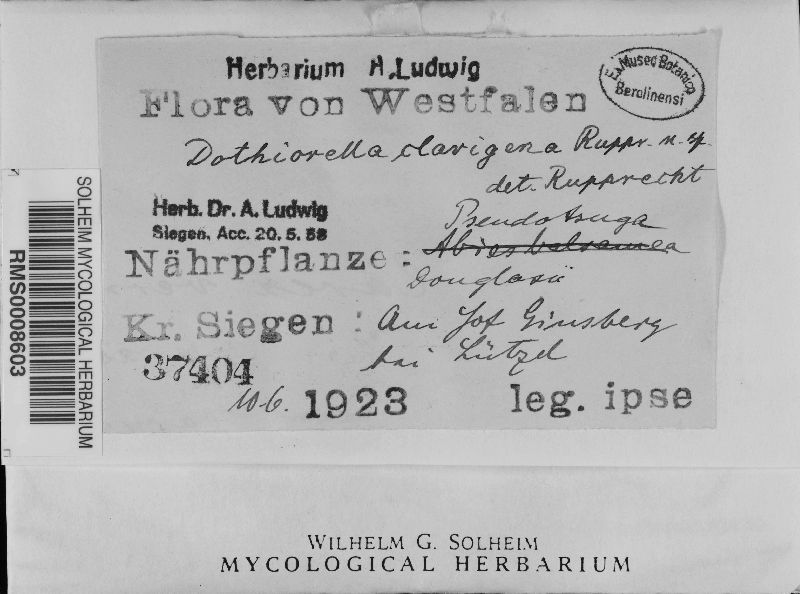 Herbarium A. Ludwig
Ex Museo Botanico
Berolinensi
Flora von Westfalen
Dothiorella clavigena Ruppr. n. sp.
det. Rupprecht
Herb. Dr. A. Ludwig
Siegen. Acc. 20. 5. 58
Pseudotsuga
Nährpflanze: Abies balsamea
Douglasii
Kr. Siegen: Am Hof Ginsberg
bei Lützel
37404
10.6. 1923 leg. ipse
SOLHEIM MYCOLOGICAL HERBARIUM
RMS0008603
WILHELM G. SOLHEIM
MYCOLOGICAL HERBARIUM